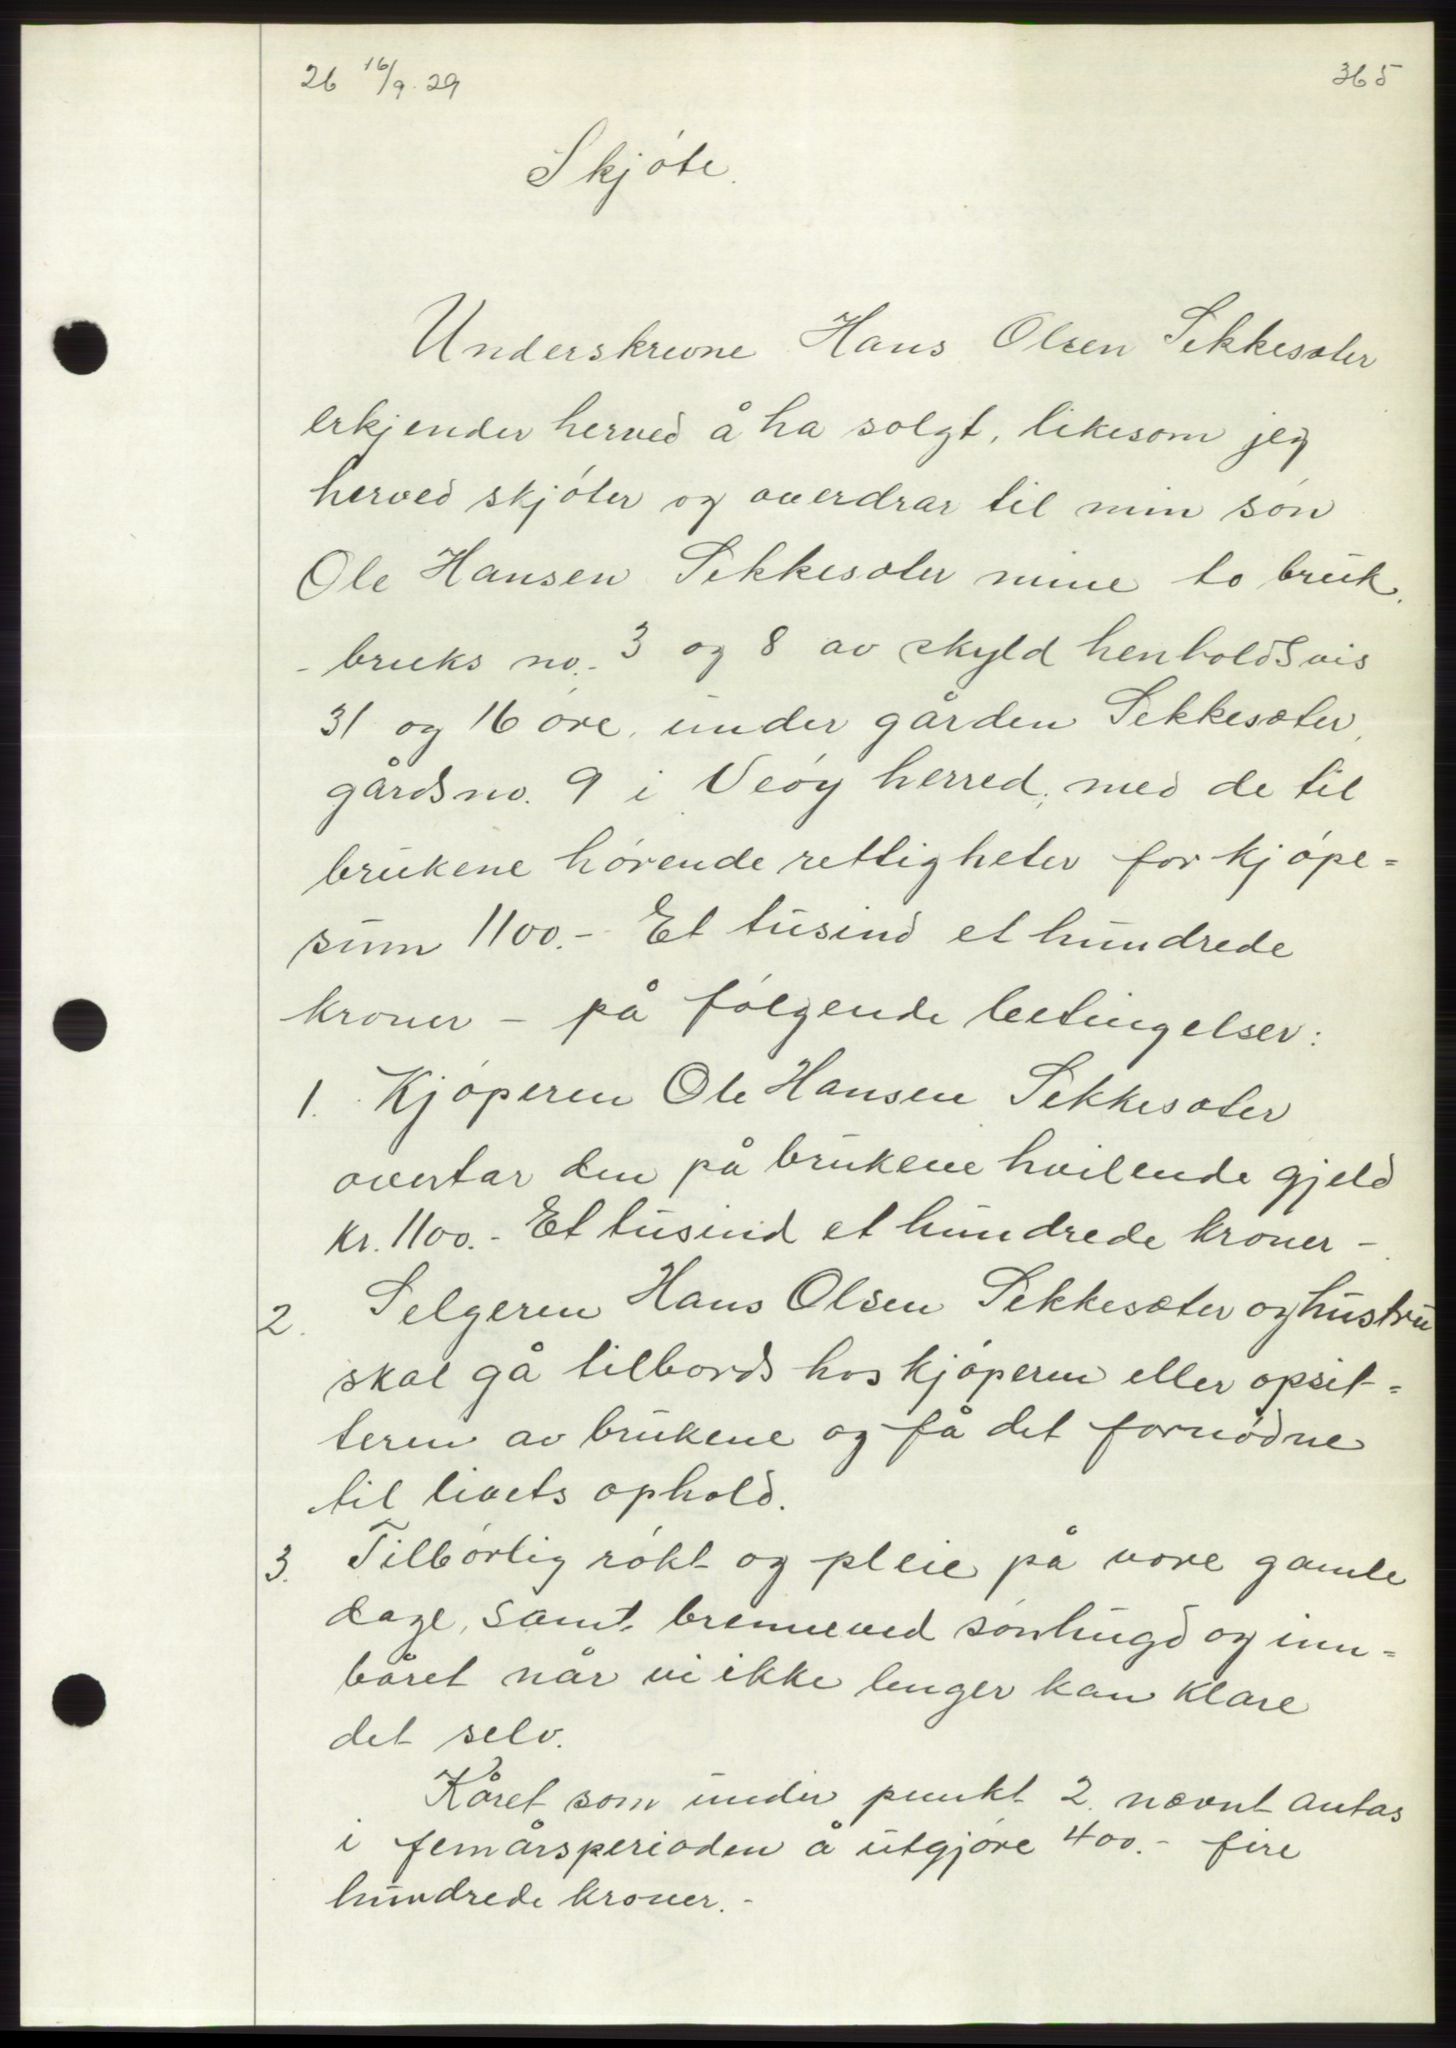 26 16/9. 29
365
Skjøte.
Underskrevne Hans Olsen Sekkesæter
erkjender herved å ha solgt, likesom jeg
herved skjøter og overdrar til min søn
Ole Hansen Sekkesæter mine to bruk.
- bruks no. 3 og 8 av skyld henholdsvis
31 og 16 øre, under gården Sekkesæter,
gårdsno. 9 i Veøy herred, med de til
brukene hørende rettigheter for kjøpe=
sum 1100.- Et tusind et hundrede
kroner - på følgende betingelser:
1. Kjøperen Ole Hansen Sekkesæter
overtar den på brukene hvilende gjeld
kr. 1100.- Et tusind et hundrede kroner -
2. Selgeren Hans Olsen Sekkesæter og hustru
skal gå tilbords hos kjøperen eller opsit-=
teren av brukene og få det fornødne
til livets ophold.
3. Tilbørlig røkt og pleie på vore gamle
dage, samt brenneved sønhugd og inn=
båret når vi ikke lenger kan klare
det selv.
Kåret som under punkt 2. nævnt antas
i femårsperioden å utgjøre 400.- fire
hundrede kroner.-